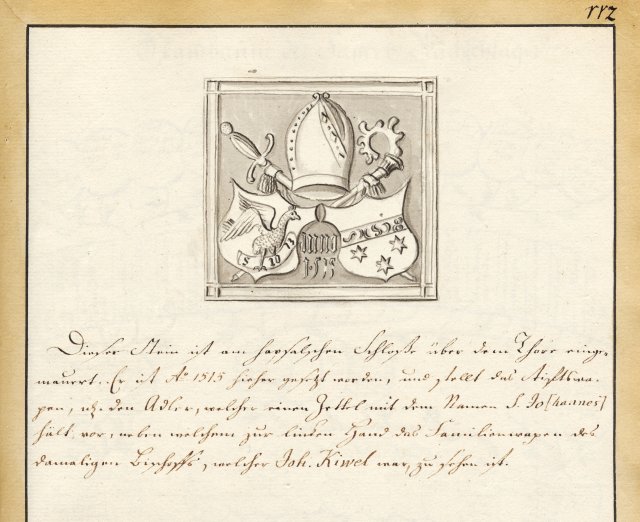 112
S IO H
anno
1·5·15
Dieser Stein ist am hapsalschen Schlosse über dem Thore einge-
mauert. Er ist Aº 1515 hieher gesetzt worden, und stellt das Stiftswa-
pen, den Adler, welcher einen Zettel mit dem Namen S. Jo[hannes]
hält, vor, neben welchem zur linken Hand das Familienwapen des
damaligen Bischoffs, welcher Joh. Kiwel war, zu sehen ist.